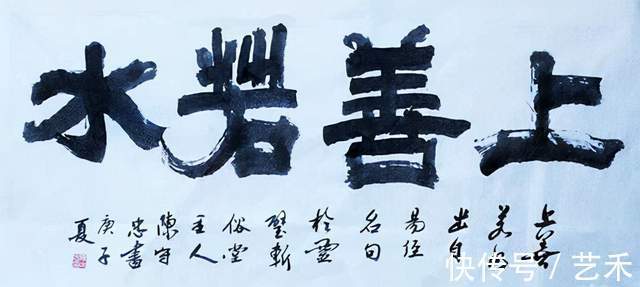 上善若水
上善
若水
出自
易经
名句
於靈
璧斬
俗堂
主人
陳守
忠書
庚子
夏
快传号 / 艺禾